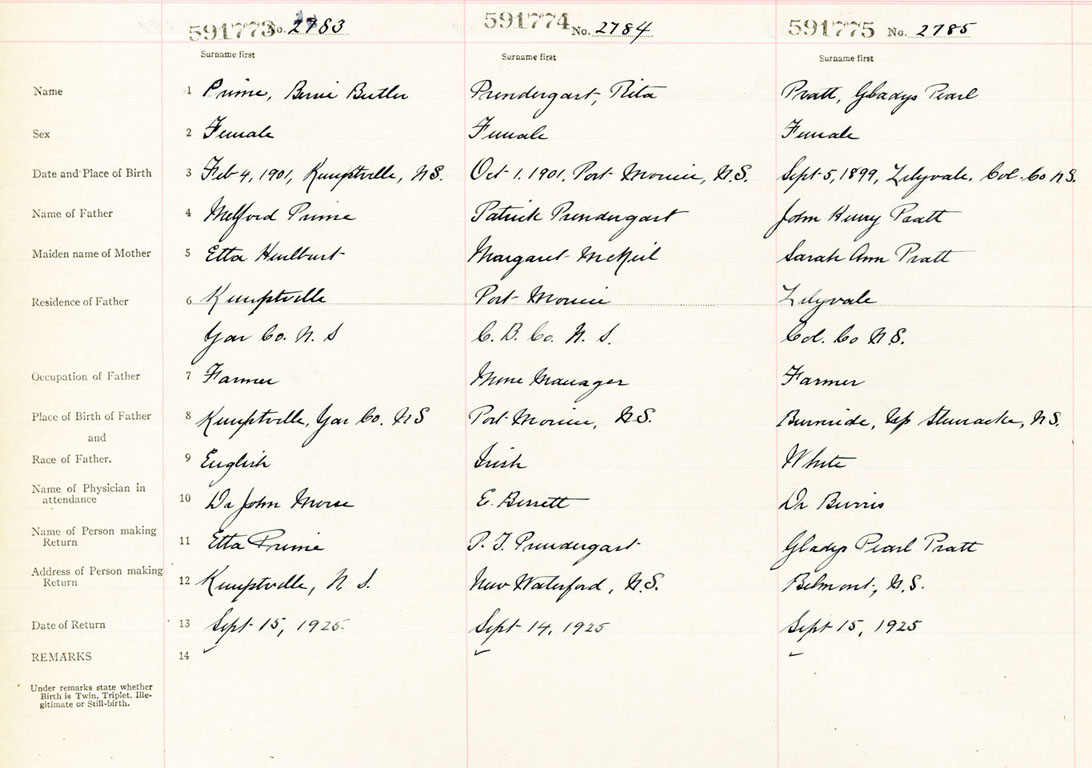 591773 No. 2783 591774 No. 2784 591775 No. 2785
Surname first Surname first Surname first
Name 1 Prime, Butler Prendergast, Rita Pratt, Gladys Pearl
Sex 2 Female Female Female
Date and Place of Birth 3 Feb 4, 1901, Kemptville, N.S. Oct 1. 1901, Port Morien, N.S. Sept 5, 1899, Lilyvale, Col. Co N.S.
Name of Father 4 Melford Prime Patrick Prendergast John Henry Pratt
Maiden name of Mother 5 Etta Hurlburt Margaret McNeil Sarah Ann Pratt
Residence of Father 6 Kemptville Port Morien Lilyvale
Yar Co. N. S C. B. Co. N. S. Col. Co N.S.
Occupation of Father 7 Farmer Mine Manager Farmer
Place of Birth of Father 8 Kemptville, Yar Co. N S Port Morien, N.S. Burnside, Up Stewiacke, N.S.
and
Race of Father. 9 English Irish White
Name of Physician in
attendance 10 Dr John Morse E. Dr
Name of Person making
Return 11 Etta Prime P. J. Prendergast Gladys Pearl Pratt
Address of Person making
Return 12 Kemptville, N. S. New Waterford, N.S. Belmont, N.S.
Date of Return 13 Sept 15, 1925 Sept 14, 1925 Sept 15, 1925
REMARKS 14
Under remarks state whether
Birth is Twin, Triplet, Ille-
gitimate or Still-birth.